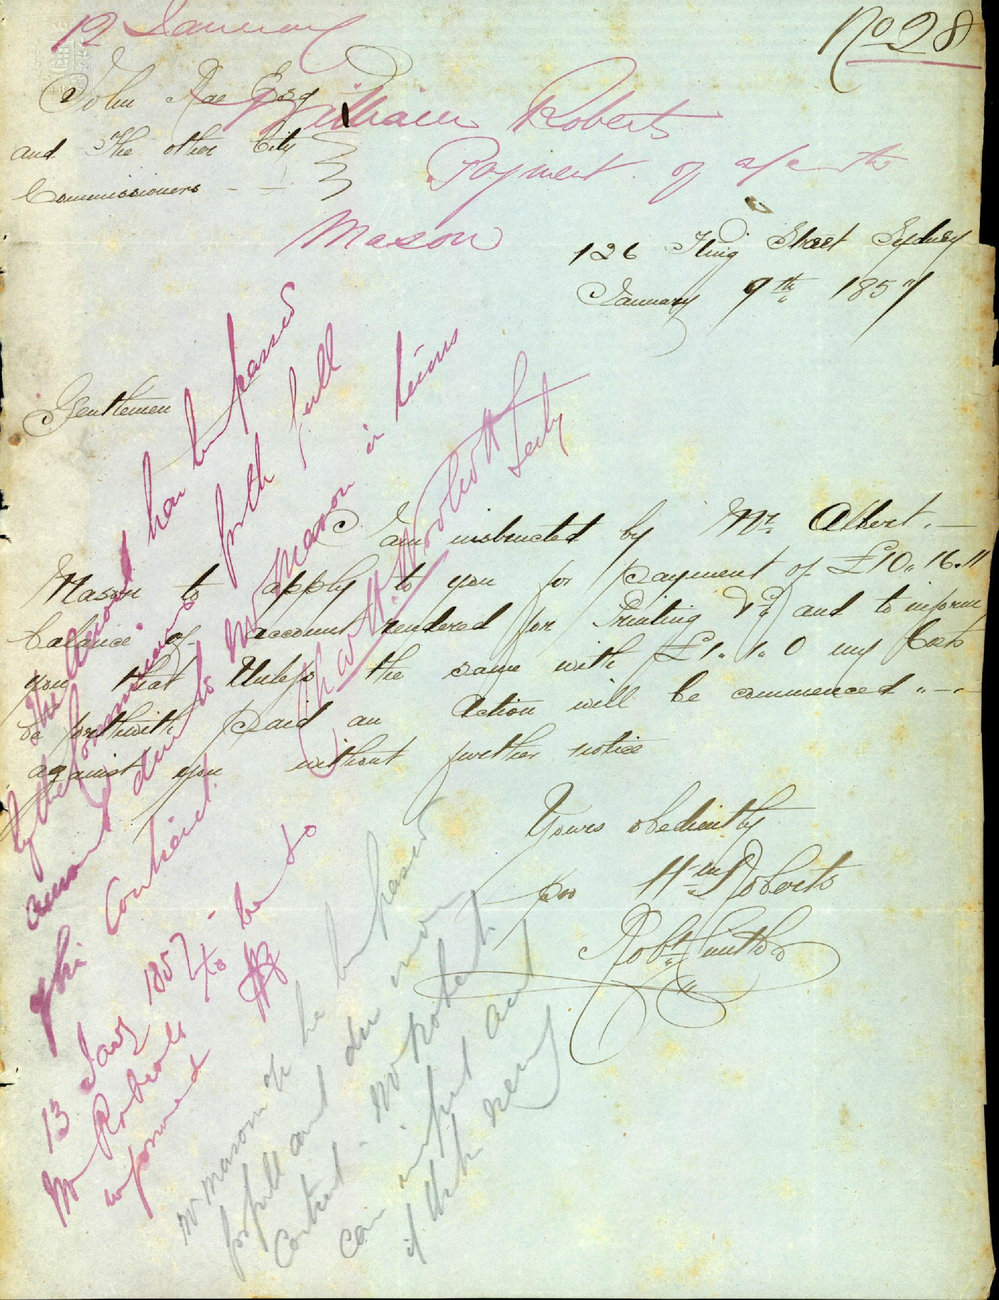 12 January
No 28
William Roberts
Payment of a/c to
Mason
John Rae Esq
and The other City
Commissioners
126 King Street Sydney
January 9th 1857
Gentlemen
I am instructed by Mr. Albert
Mason to apply to you for payment of £10.16.11
balance of account rendered for Printing &c and to inform
you that Unless the same with £1.1.0 my Costs
be forthwith paid an Action will be commenced
against you without further notice
Yours obediently
for Wm Roberts
Robt
The Amount has been passed
by the Commissioners for the full
amount due to Mr Mason in terms
of his Contract.
Chas H. Woolcott
Secty
13 Jany 1857
Mr Roberts to be so
informed
Mr Mason a/c has been passed
for full amt due under
Contract - Mr Roberts
can inspect acct
if he